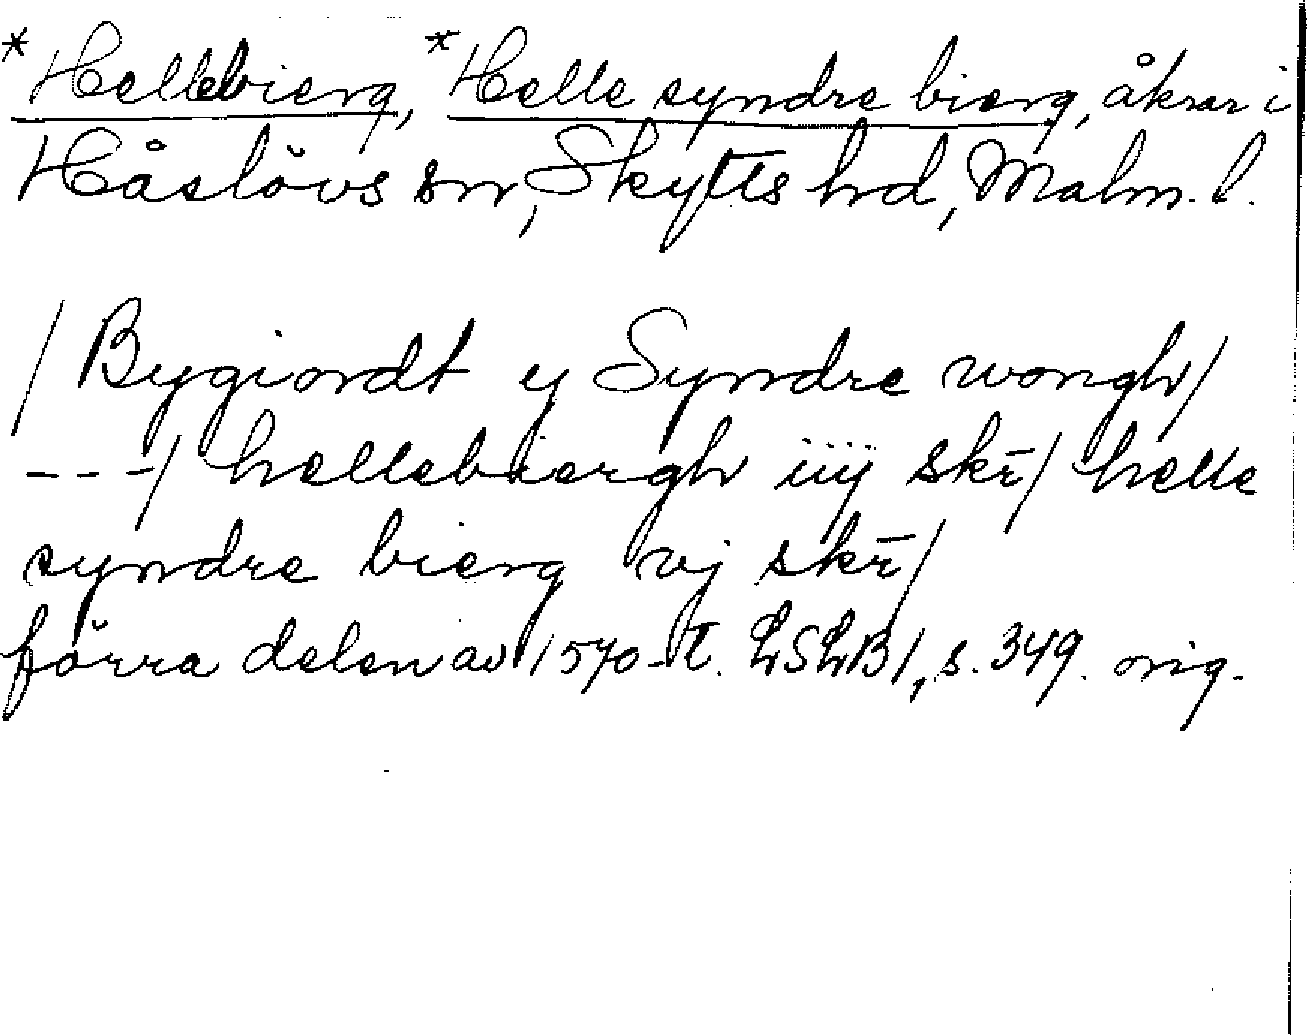 *Hellebierg, *Helle syndre bierg, åkrar i
Håslövs sn, Skytts hd, Malm. l.
/ Bygiordt ej Syndre wongh/
---/ hellebiergh iiij skr̄/ helle
syndre bierg vj skr̄/
förra delen av 1570-t. LSLB1, s. 349. orig.